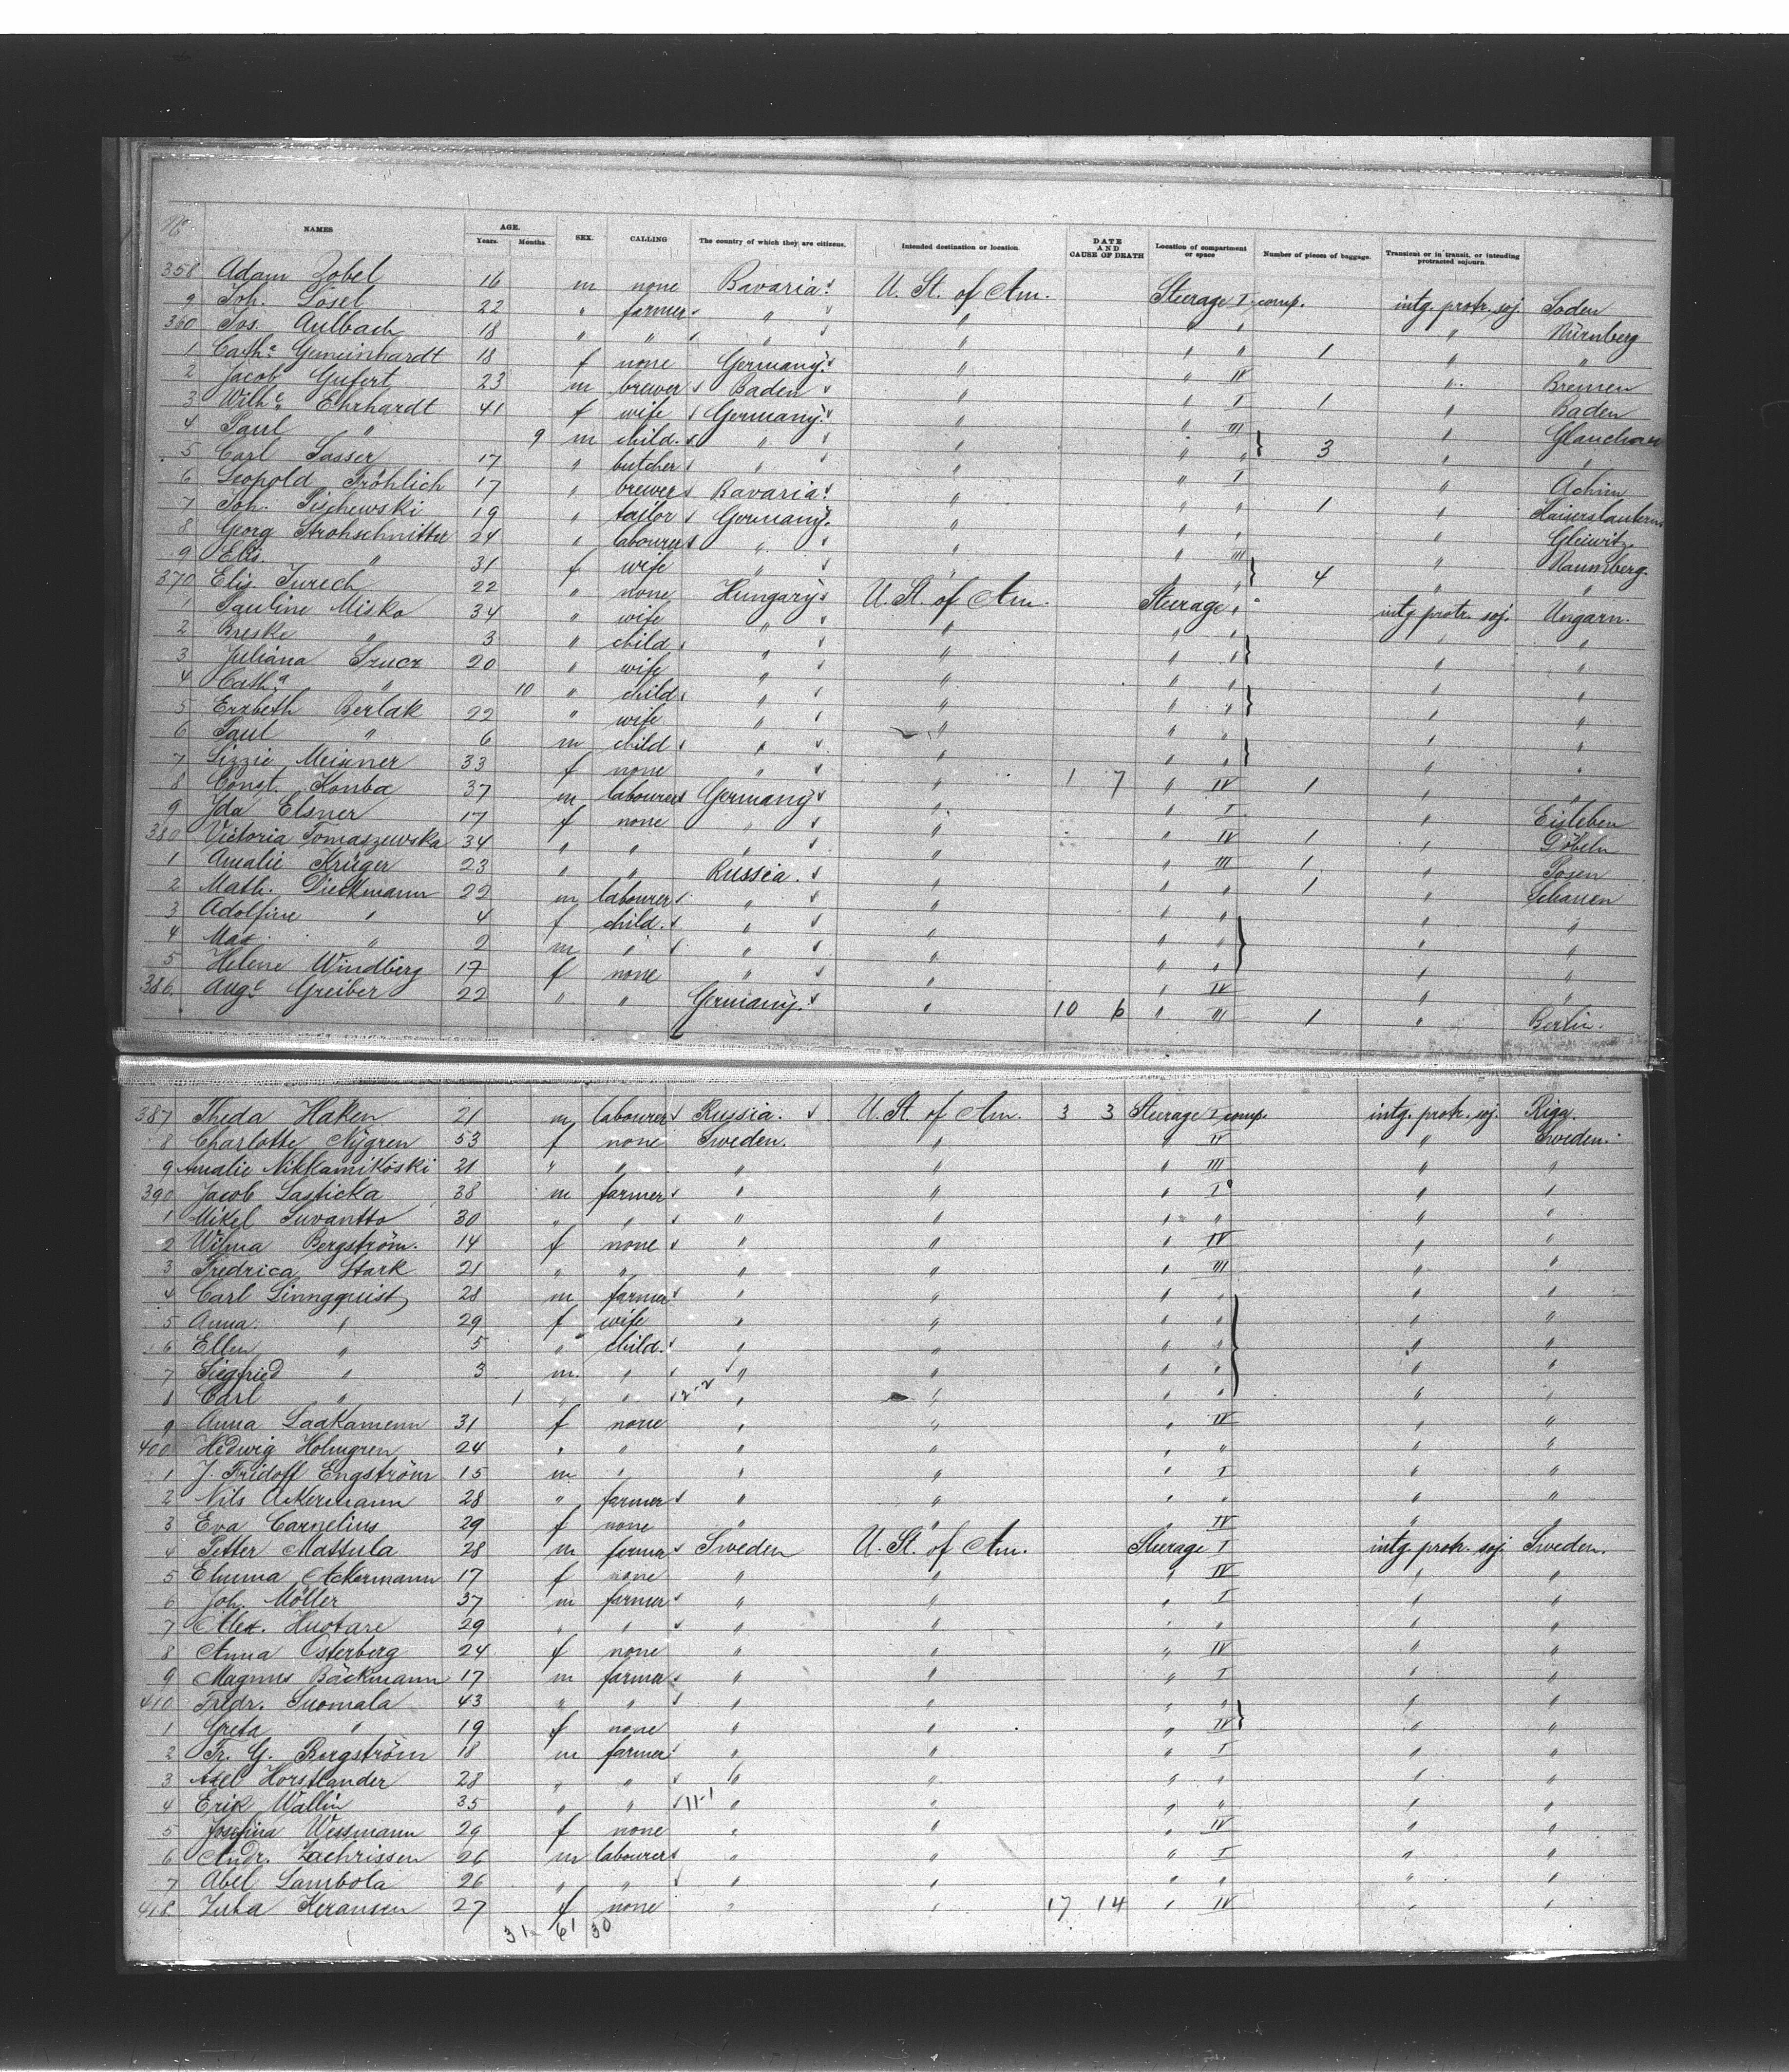 No NAMES AGE. Years. Months. SEX. CALLING The country of which they are citizens. Intended destination or location. DATE AND CAUSE OF DEATH Location of compartment or space Number of pieces of baggage. Transient or in transit, or intending protracted sojourn
358 Adam Zobel 16 m none Bavaria. U. St. of Am. Steerage I comp. intg. protr. soj. Soden
9 Joh. Lösel 22 " farmer " " " " " Nürnberg
360 Jos. Aulbach 18 " " " " " " 1 " "
1 Cath. Gemeinhardt 18 f none Germany. " " IV " Bremen
2 Jacob Gufert 23 m brewer Baden " " I 1 " Baden
3 Wilhe. Ehrhardt 41 f wife Germany. " " III 3 " Glauchau
4 Paul " 9 m child. " " " " " "
5 Carl Sasser 17 " butcher " " " I " Achim
6 Leopold Fröhlich 17 " brewer Bavaria. " " " 1 " Kaiserslautern
7 Joh. Pischewski 19 " tailor Germany. " " " " Gleiwitz
8 Georg Strohschnitter 24 " labourer " " " III 4 " Naumberg.
9 Elis. " 31 f wife " " " " " "
370 Elis Jurech 22 " none Hungary U. St. of Am. Steerage " intg. protr. soj. Ungarn.
1 Pauline Misko 34 " wife " " " " " "
2 Breske " 3 " child " " " " " "
3 Juliana 20 " wife " " " " " "
4 Catha. " 10 " child " " " " " "
5 Erzbeth Berlak 22 " wife " " " " " "
6 Paul " 6 m child " " " " " "
7 Lizzie Meixner 33 f none " " 1 7 " IV 1 " "
8 Const. Konba 37 m labourer Germany " " I " Eisleben
9 Ida Elsner 17 f none " " " IV 1 " Döbeln
380 Victoria Tomaszewska 34 " " " " " III 1 " Posen
1 Amalie Krüger 23 " " Russia. " " " 1 " Schauen
2 Math. Dieckmann 22 m labourer " " " " " "
3 Adolfine " 4 f child. " " " " " "
4 Max " 2 m " " " " " " "
5 Helene Windberg 17 f none " " " IV " "
386. Auge. Greiber 22 " " Germany. " 10 6 " III 1 " Berlin.
387 Theda Haken 21 m labourer Russia. U. St. of Am. 3 3 Steerage I comp. intg. protr. soj. Riga.
8 Charlotte Nygren 53 f none Sweden. " " IV " Sweden.
9 Amalie Nikkamikoski 21 " " " " " III " "
390 Jacob Lasticka 38 m farmer " " " I " "
1 Mikel Suvantto 30 " " " " " " " "
2 Wilma Bergström. 14 f none " " " IV " "
3 Fredrica Stark 21 " " " " " III " "
4 Carl Linngquist 28 m farmer " " " " " "
5 Anna " 29 f wife " " " " " "
6 Ellen " 5 " child. " " " " " "
7 Siegfried " 3 m. " " " " " " "
8 Carl " 1 " " 2-2 " " " " " "
9 Anna Laakamenn 31 f none " " " IV " "
400 Hedwig Holmgren 24 " " " " " " " "
1 J. Fridoff Engström 15 m " " " " I " "
2 Nils Ackermann 28 " farmer " " " " " "
3 Eva Carnelius 29 f none " " " IV " "
4 Petter Mattula 28 m farmer Sweden U. St. of Am. Steerage I intg. protr. soj. Sweden.
5 Emma Ackermann 17 f none " " " IV " "
6 Joh. Möller 37 m farmer " " " I " "
7 Alex. Huotare 29 " " " " " " " "
8 Anna Österberg 24 f none " " " IV " "
9 Magnus Bäckmann 17 m farmer " " " I " "
410 Fredr. Suomala 43 " " " " " " " "
1 Greta " 19 f none " " " IV " "
2 Fr. G. Bergström 18 m farmer " " " I " "
3 Axel Horstlander 28 " " " " " " " "
4 Erik Wallin 35 " " 11-1 " " " " " "
5 Josefina Wessmann 29 f none " " " IV " "
6 Andr. Zachrissen 26 m labourer " " " I " "
7 Abel Lambola 26 " " " " " " " "
418. Juha Keransen 27 f none " " 17 14 " IV " "
31 61 30